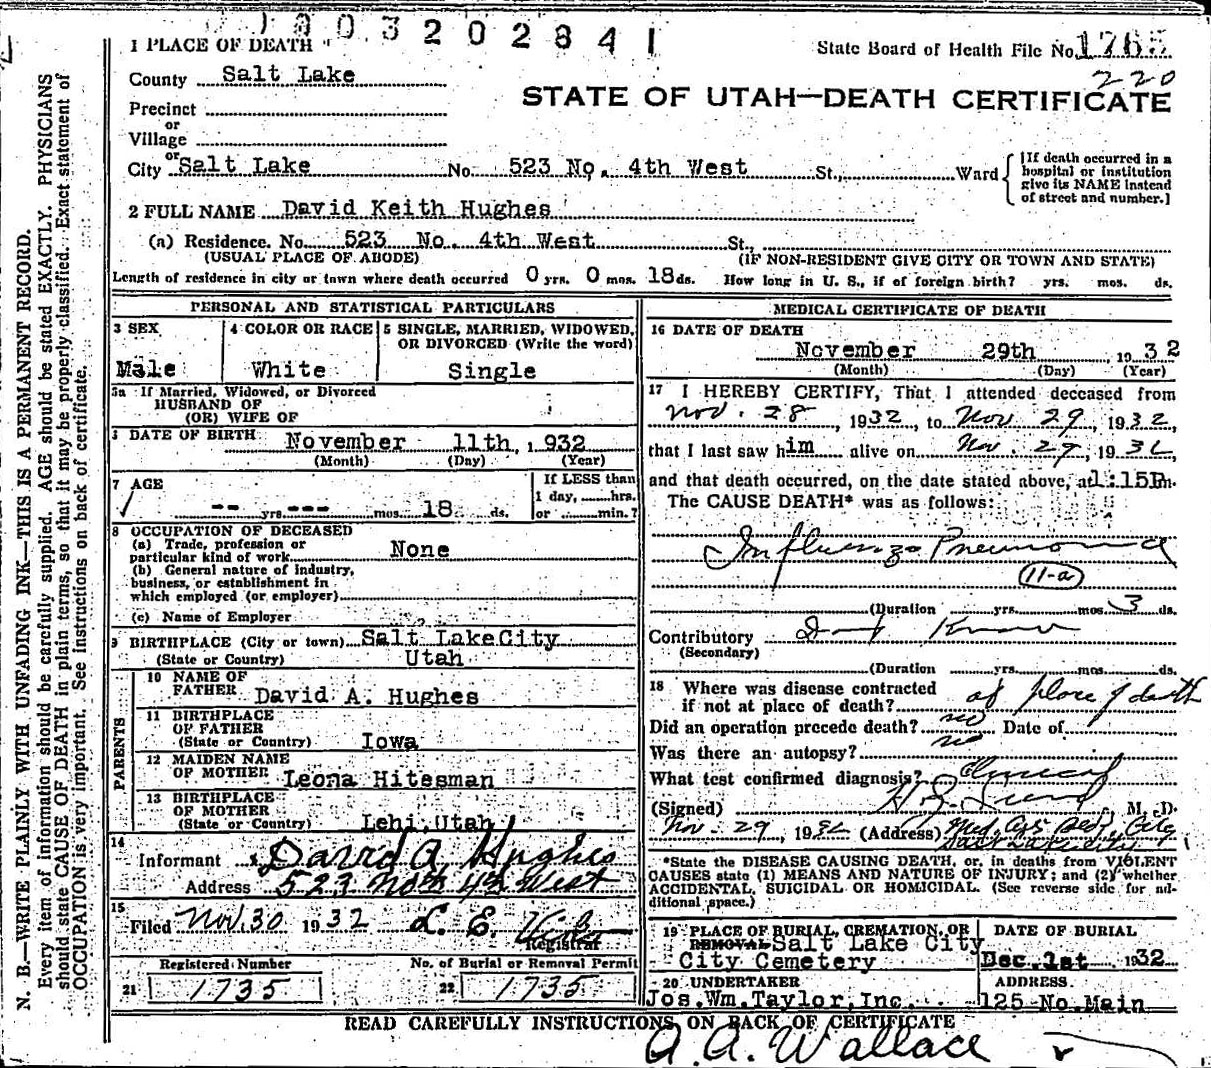 3202841
1 PLACE OF DEATH
State Board of Health File No. 1765
220
County Salt Lake
STATE OF UTAH—DEATH CERTIFICATE
Precinct
or
Village
or
City Salt Lake No. 523 No. 4th West St., Ward
[If death occurred in a hospital or institution give its NAME instead of street and number.]
2 FULL NAME David Keith Hughes
(a) Residence. No. 523 No. 4th West St.,
(USUAL PLACE OF ABODE) (IF NON-RESIDENT GIVE CITY OR TOWN AND STATE)
Length of residence in city or town where death occurred 0 yrs. 0 mos. 18 ds. How long in U. S., if of foreign birth? yrs. mos. ds.
N. B.—WRITE PLAINLY WITH UNFADING INK—THIS IS A PERMANENT RECORD.
Every item of information should be carefully supplied. AGE should be stated EXACTLY. PHYSICIANS
should state CAUSE OF DEATH in plain terms, so that it may be properly classified. Exact statement of
OCCUPATION is very important. See instructions on back of certificate.
PERSONAL AND STATISTICAL PARTICULARS
3 SEX
Male
4 COLOR OR RACE
White
5 SINGLE, MARRIED, WIDOWED,
OR DIVORCED (Write the word)
Single
5a If Married, Widowed, or Divorced
HUSBAND OF
(OR) WIFE OF
DATE OF BIRTH November 11th, 1932
(Month) (Day) (Year)
7 AGE
-- yrs. --- mos. 18 ds.
If LESS than
1 day, hrs.
or min.?
8 OCCUPATION OF DECEASED
(a) Trade, profession or
particular kind of work None
(b) General nature of industry,
business, or establishment in
which employed (or employer)
(c) Name of Employer
9 BIRTHPLACE (City or town) Salt Lake City
(State or Country) Utah
PARENTS
10 NAME OF
FATHER David A. Hughes
11 BIRTHPLACE
OF FATHER
(State or Country) Iowa
12 MAIDEN NAME
OF MOTHER Leona Hitesman
13 BIRTHPLACE
OF MOTHER
(State or Country) Lehi, Utah
14
Informant David A. Hughes
Address 523 North 4th West
15
Filed Nov. 30 1932 L. E.
Registrar
Registered Number
21 1735
No. of Burial or Removal Permit
22 1735
MEDICAL CERTIFICATE OF DEATH
16 DATE OF DEATH
November 29th, 1932
(Month) (Day) (Year)
17 I HEREBY CERTIFY, That I attended deceased from
Nov. 28, 1932, to Nov. 29, 1932,
that I last saw him alive on Nov. 29, 1932,
and that death occurred, on the date stated above, at 1:15P m.
The CAUSE DEATH* was as follows:
Influenza Pneumonia
11-a
(Duration yrs. mos. 3 ds.
Contributory Don't Know
(Secondary)
(Duration yrs. mos. ds.
18 Where was disease contracted
if not at place of death? at place of death
Did an operation precede death? no Date of
Was there an autopsy? no
What test confirmed diagnosis? Clinical
(Signed) M. D.
Nov. 29, 1932 (Address) Med. Arts Bldg, City
Salt Lake City
*State the DISEASE CAUSING DEATH, or, in deaths from VIOLENT
CAUSES state (1) MEANS AND NATURE OF INJURY; and (2) whether
ACCIDENTAL, SUICIDAL OR HOMICIDAL. (See reverse side for ad-
ditional space.)
19 PLACE OF BURIAL, CREMATION, OR
REMOVAL Salt Lake City
City Cemetery
DATE OF BURIAL
Dec. 1st 1932
20 UNDERTAKER
Jos. Wm. Taylor, Inc.
ADDRESS
125 No. Main
READ CAREFULLY INSTRUCTIONS ON BACK OF CERTIFICATE
A. A. Wallace